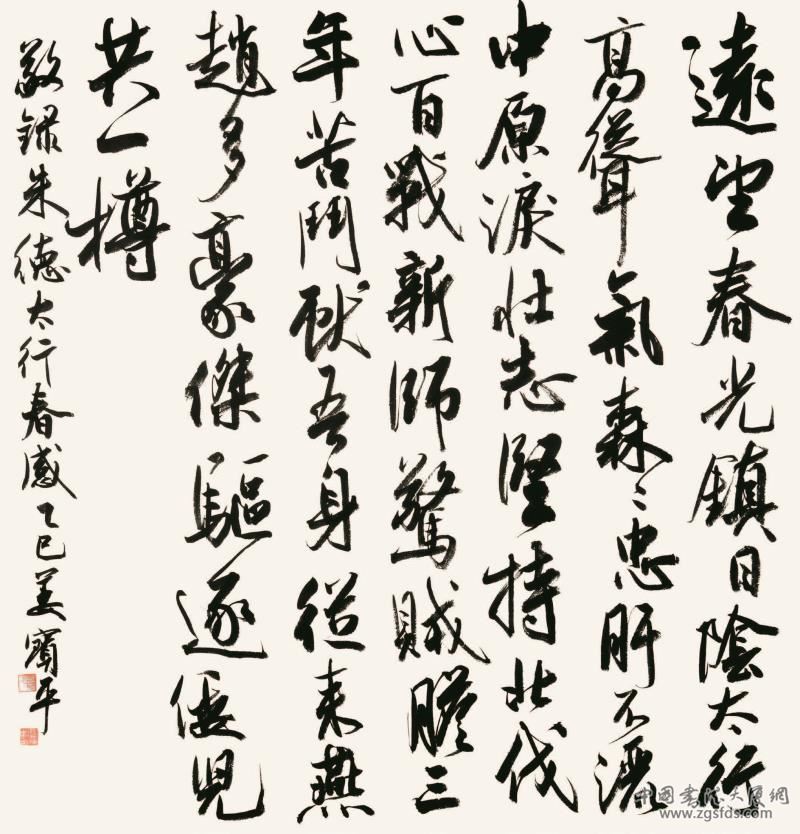 遠望春光鎮日陰太行
高聳氣森森忠肝不灑
中原淚壯志堅持北伐
心百戰新師驚賊膽三
年苦鬥獻吾身從來燕
趙多豪傑驅逐倭兒
共一樽
敬錄朱德太行春感乙巳姜寶平
中國書法大廈網
www.zgsfds.com